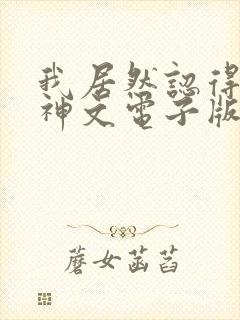 我居然認得
神文電子版
蘑女菡萏